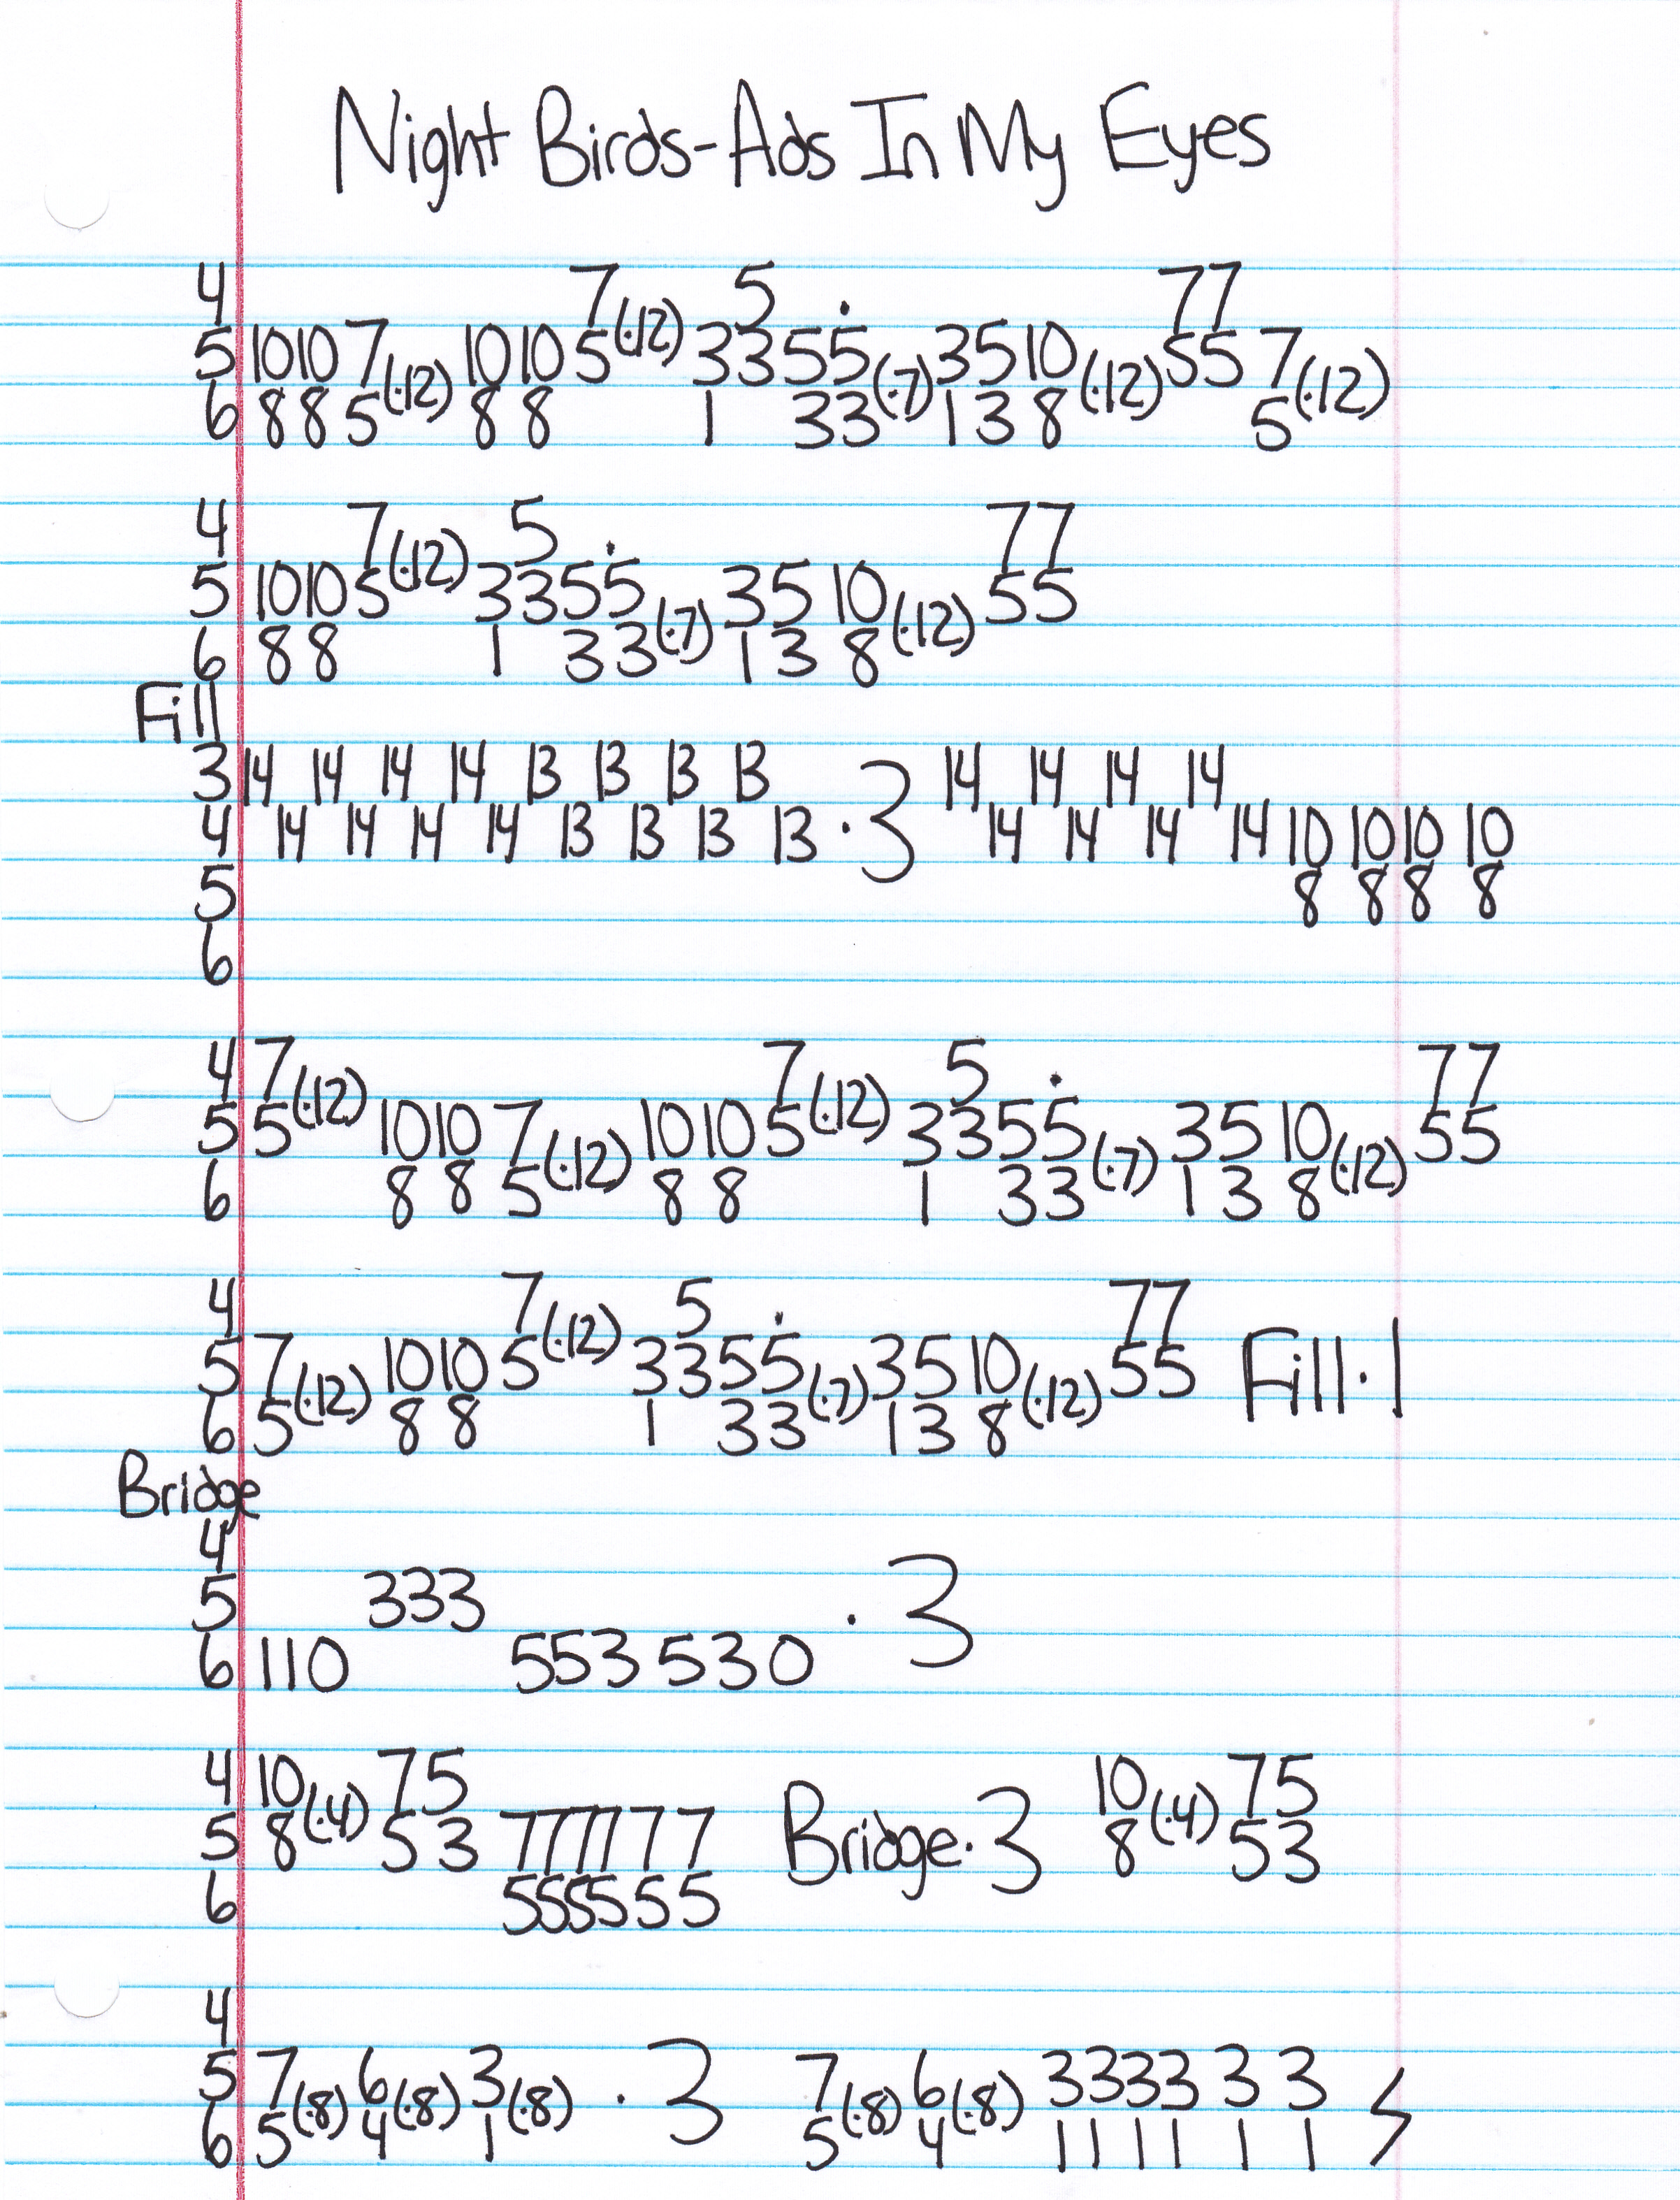 Night Birds-Ads In My Eyes
4 7(·12) 5 · 77
5 10 10 7(·12) 10 10 5 3 3 5 5(·7) 3 5 10(·12) 5 5 7(·12)
6 8 8 5 8 8 1 3 3 1 3 8 5
4 7(·12) 5 · 77
5 10 10 5 3 3 5 5(·7) 3 5 10(·12) 5 5
6 8 8 1 3 3 1 3 8
Fill
3 14 14 14 14 13 13 13 13 ·3 14 14 14 14
4 14 14 14 14 13 13 13 13 14 14 14 14 10 10 10 10
5 8 8 8 8
6
4 7(·12) 7(·12) 5 · 77
5 5 10 10 7(·12) 10 10 5 3 3 5 5(·7) 3 5 10(·12) 5 5
6 8 8 5 8 8 1 3 3 1 3 8
4 7(·12) 5 · 77
5 7(·12) 10 10 5 3 3 5 5(·7) 3 5 10(·12) 5 5 Fill·1
6 5 8 8 1 3 3 1 3 8
Bridge
4
5 333 ·3
6 110 553 530
4 10(·4) 7 5 10(·4) 7 5
5 8 5 3 777777 Bridge·3 8 5 3
6 555555
4
5 7(·8) 6(·8) 3(·8) ·3 7(·8) 6(·8) 3333 3 3
6 5 4 1 5 4 1111 1 1